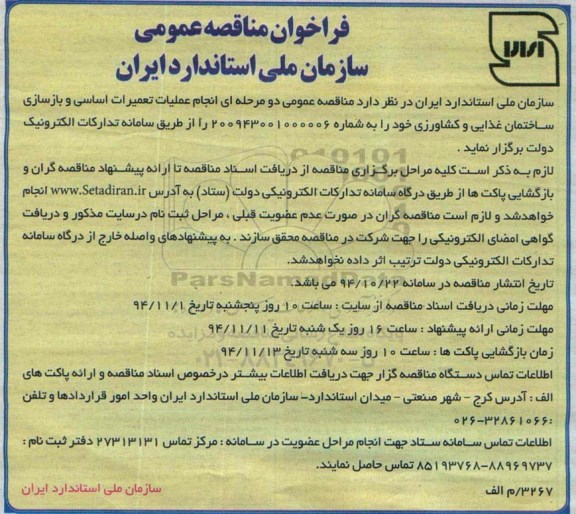 فراخوان مناقصه عمومی
سازمان ملی استاندارد ایران
سازمان ملی استاندارد ایران در نظر دارد مناقصه عمومی دو مرحله ای انجام عملیات تعمیرات اساسی و بازسازی
ساختمان غذایی و کشاورزی خود را به شماره ۲۰۰۹۴۳۰۰۱۰۰۰۰۰۶ را از طریق سامانه تدارکات الکترونیک
دولت برگزار نماید .
لازم به ذکر است کلیه مراحل برگزاری مناقصه از دریافت اسناد مناقصه تا ارائه پیشنهاد مناقصه گران و
بازگشایی پاکت ها از طریق درگاه سامانه تدارکات الکترونیکی دولت (ستاد) به آدرس www.Setadiran.ir انجام
خواهدشد و لازم است مناقصه گران در صورت عدم عضویت قبلی ، مراحل ثبت نام درسایت مذکور و دریافت
گواهی امضای الکترونیکی را جهت شرکت در مناقصه محقق سازند . به پیشنهادهای واصله خارج از درگاه سامانه
تدارکات الکترونیکی دولت ترتیب اثر داده نخواهدشد.
تاریخ انتشار مناقصه در سامانه ۹۴/۱۰/۲۲ می باشد.
مهلت زمانی دریافت اسناد مناقصه از سایت : ساعت ۱۰ روز پنجشنبه تاریخ ۹۴/۱۱/۱
مهلت زمانی ارائه پیشنهاد : ساعت ۱۶ روز یک شنبه تاریخ ۹۴/۱۱/۱۱
زمان بازگشایی پاکت ها : ساعت ۱۰ روز سه شنبه تاریخ ۹۴/۱۱/۱۳
اطلاعات تماس دستگاه مناقصه گزار جهت دریافت اطلاعات بیشتر درخصوص اسناد مناقصه و ارائه پاکت های
الف : آدرس کرج - شهر صنعتی - میدان استاندارد- سازمان ملی استاندارد ایران واحد امور قراردادها و تلفن
:۰۲۶-۳۲۸۶۱۰۶۶
اطلاعات تماس سامانه ستاد جهت انجام مراحل عضویت در سامانه : مرکز تماس ۲۷۳۱۳۱۳۱ دفتر ثبت نام :
۸۵۱۹۳۷۶۸-۸۸۹۶۹۷۳۷ تماس حاصل نمایند.
۳۲۶۷/م الف
سازمان ملی استاندارد ایران
ParsNamadData